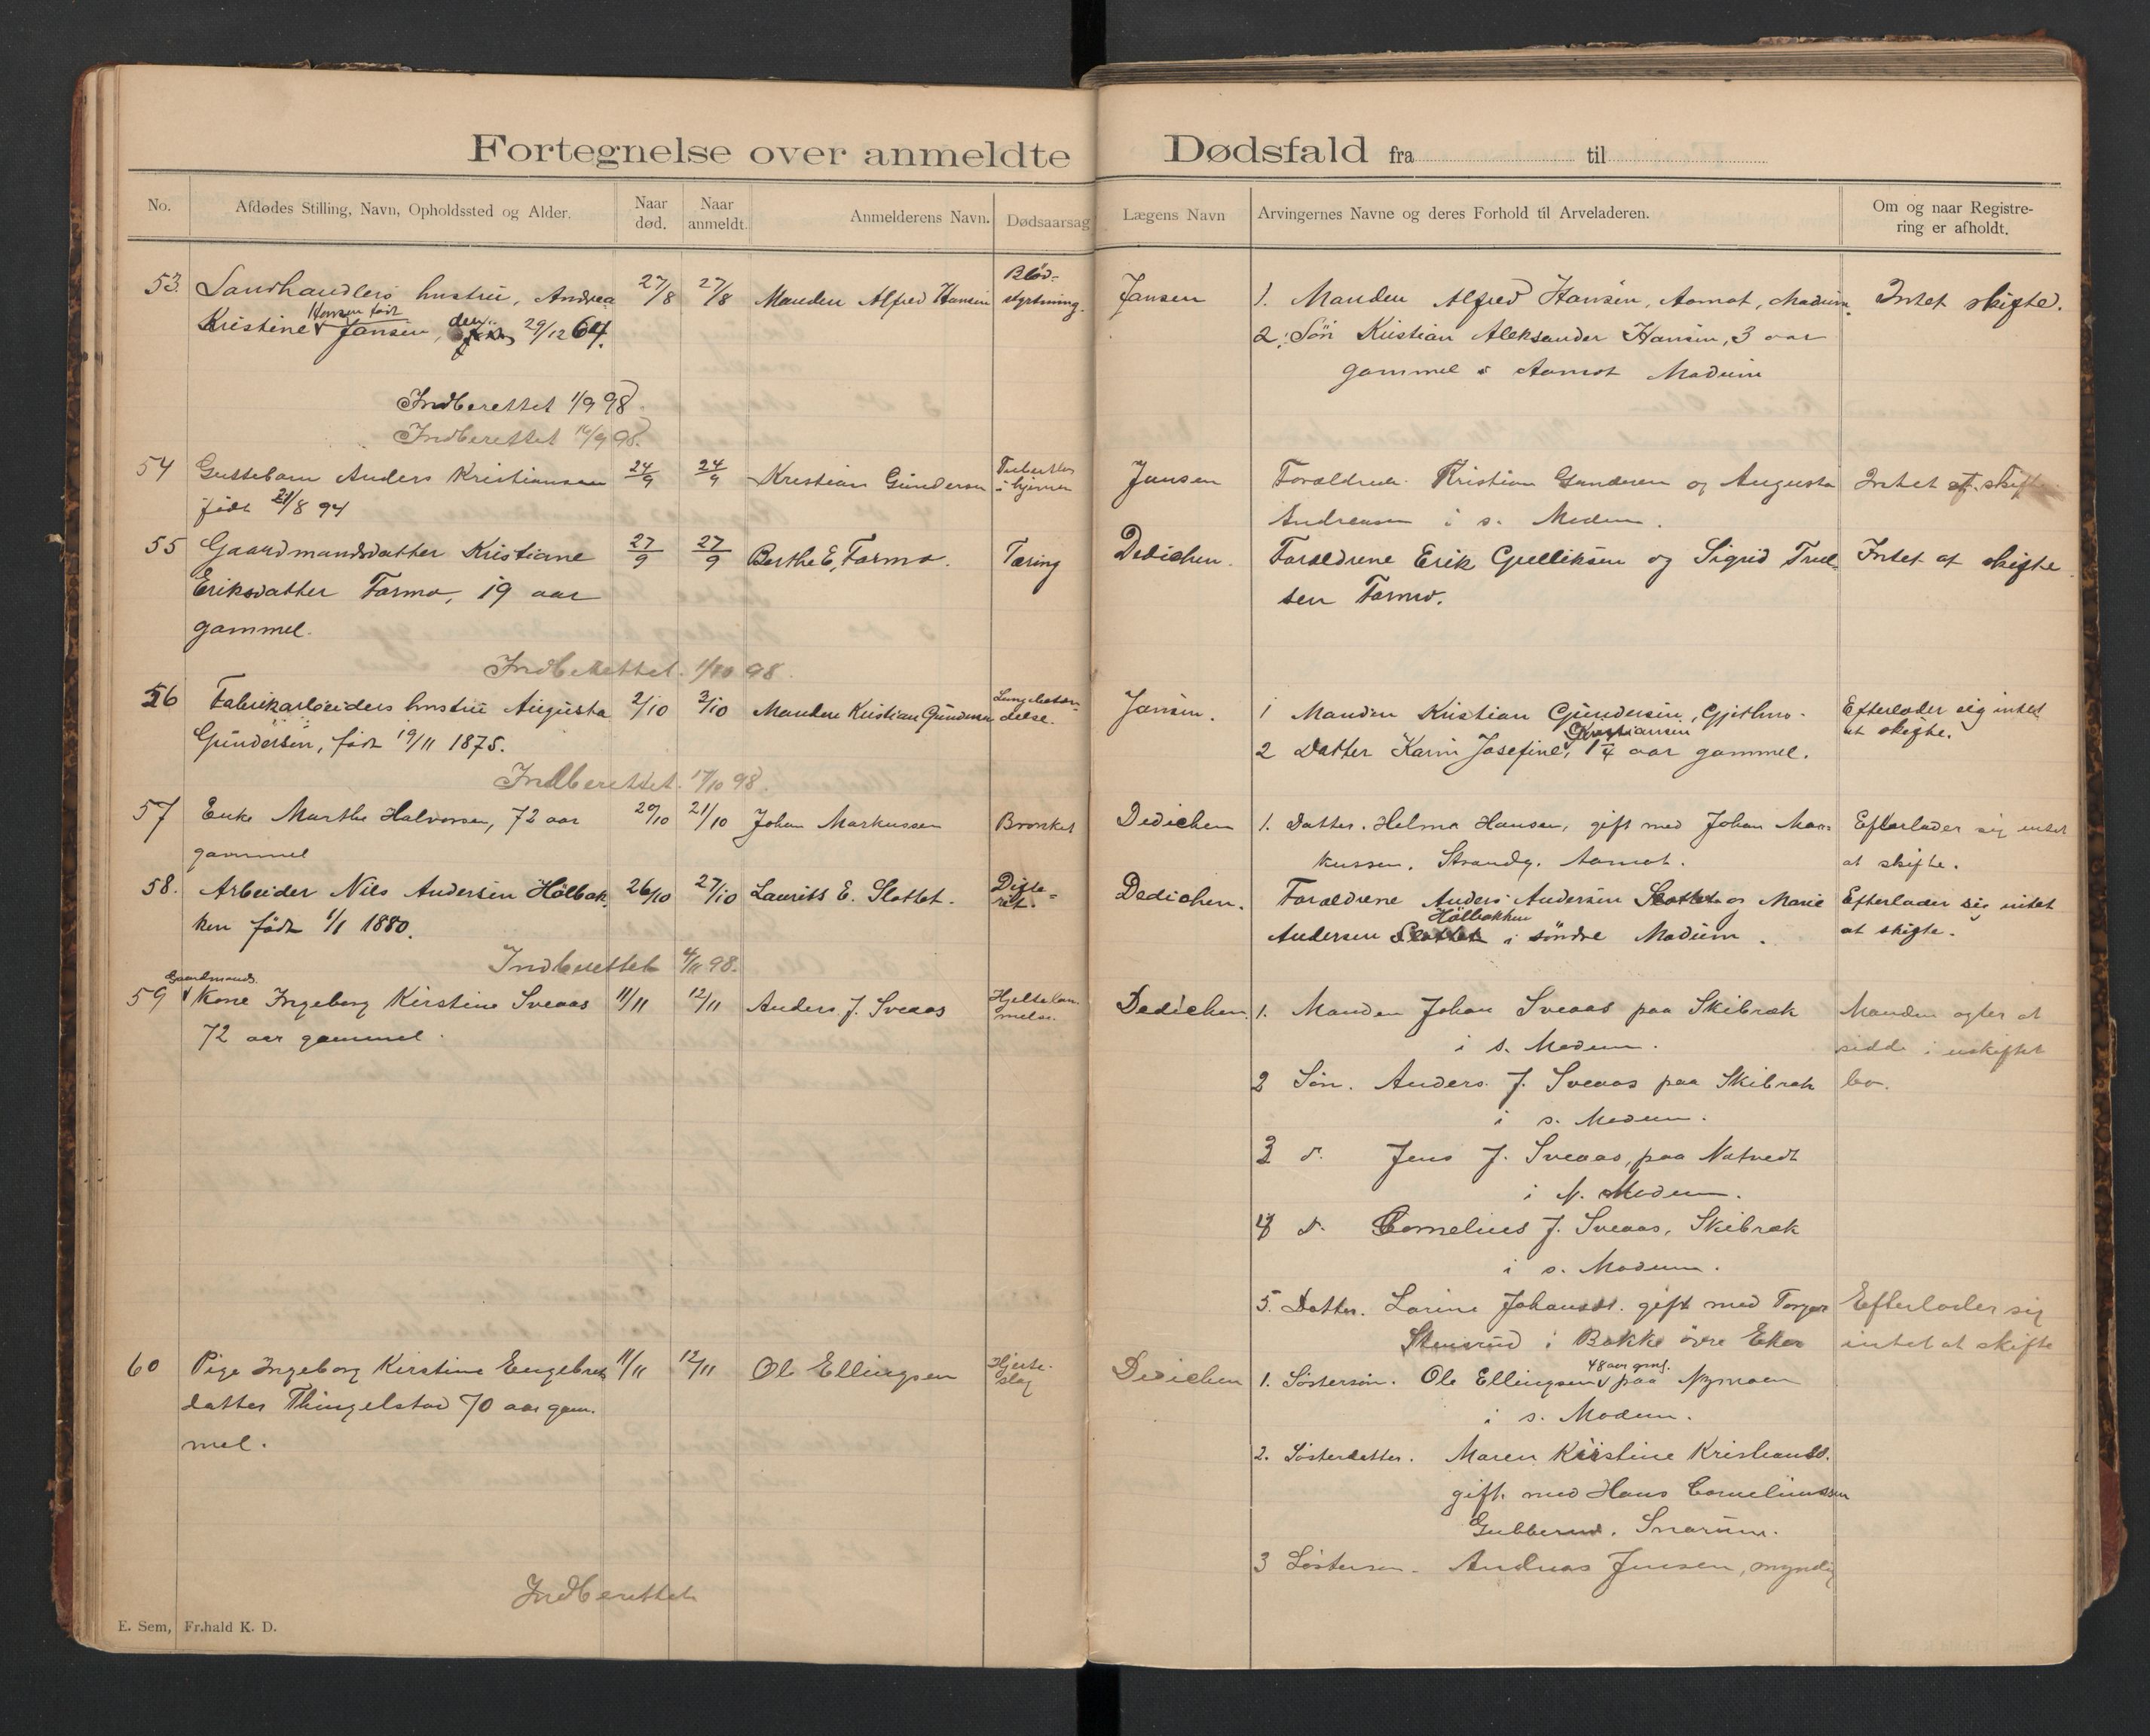 Fortegnelse over anmeldte Dødsfald fra til
No. Afdødes Stilling, Navn, Opholdssted og Alder. Naar død. Naar anmeldt. Anmelderens Navn. Dødsaarsag Lægens Navn Arvingernes Navne og deres Forhold til Arveladeren. Om og naar Registrering er afholdt.
53. Landhandlers hustru, Andrea 27/8 27/8 Manden Alfred Hansen Blodstyrtning. Jansen 1. Manden Alfred Hansen, Aamot, Modum. Intet skifte.
Kristine Hansen født Jansen, den 29/12 64. 2. Søn Kristian Aleksander Hansen, 3 aar
gammel Aamot Modum
Indberettet 1/9 98
Indberettet 16/9 98.
54 Guttebarn Anders Kristiansen 24/9 24/9 Kristian Gundersen i hjernen Jansen Forældrene Kristian Gundersen og Augusta Intet at skifte
født 21/8 94 Andreasen i s. Modum.
55 Gaardmandsdatter Kristiane 27/9 27/9 Berthe E. Formo. Tæring Dedichen. Forældrene Erik Gulliksen og Sigrid Trul- Intet at skifte.
Eriksdatter Formo, 19 aar sen Formo.
gammel.
Indberettet. 1/10 98.
56 Fabrikarbeiders hustru Augusta 2/10 3/10 Manden Kristian Gundersen Lungebetændelse. Jansen. 1 Manden Kristian Gundersen, Gjethus. Efterlader sig intet
Gundersen, født 19/11 1875. 2 Datter Karin Josefine Kristiansen, 1 1/4 aar gammel. at skifte.
Indberettet. 17/10 98.
57 Enke Marthe Halvorsen, 72 aar 20/10 21/10 Johan Markussen Bronkit Dedichen 1. Datter. Helma Hansen, gift med Johan Mar- Efterlader sig intet
gammel kussen. Strandg. Aamot. at skifte.
58. Arbeider Nils Andersen Hólbak- 26/10 27/10 Laurits E. Slottet. Difterit. Dedichen. Forældrene Anders Andersen Slottet og Marie Efterlader sig intet
ken født 1/1 1880. Andersen Slottet Hólbakken i søndre Modum. at skifte.
Indberettet 4/11 98.
59 Gaardmands Kone Ingeborg Kirstine Sveaas 11/11 12/11 Anders J. Sveaas Dedichen. 1. Manden Johan Sveaas paa Skibræk Manden agter at
72 aar gammel. i s. Modum. sidde i uskiftet
2 Søn. Anders. J. Sveaas paa Skibræk bo.
i s. Modum.
3 d. Jens J. Sveaas, paa Natvedt
i N. Modum.
4 d. Cornelius J. Sveaas, Skibræk
i s. Modum.
5. Datter. Larine Johansdt. gift med Torger Efterlader sig
Stensrud i Bakke övre Eker intet at skifte
60 Pige Ingeborg Kirstine Engebrets 11/11 12/11 Ole Ellingsen Hjerteslag Dedichen 1. Søstersøn. Ole Ellingsen 48 aar gml. paa Nymoen
datter Thingelstad 70 aar gam- i s. Modum.
mel. 2. Søsterdatter. Maren Kirstine Kristiansd.
gift. med Hans Corneliussen
Gubberud. Snarum.
3 Søstersøn. Andreas Jensen, myndig
Indberettet
E. Sem, Fr.hald K. D.